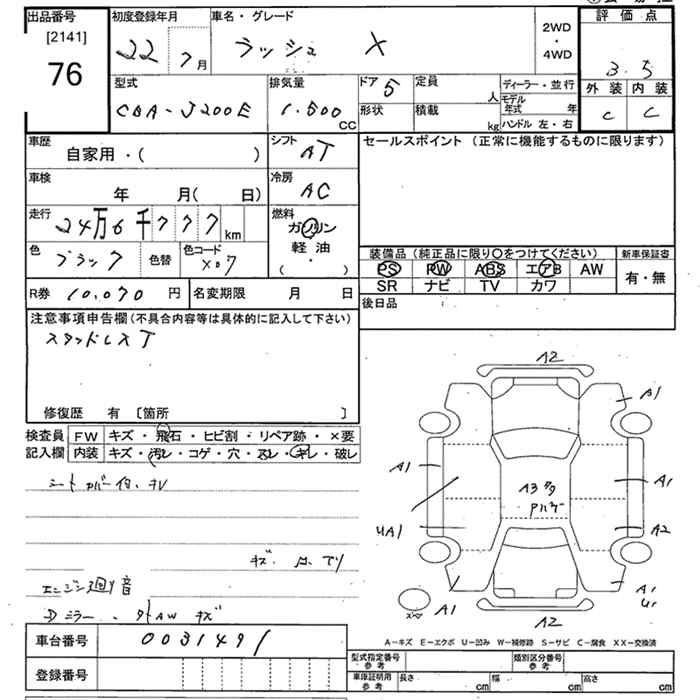 出品番号
[2141]
76
初度登録年月
22 7月
車名・グレード
ラッシュ X
2WD
・
4WD
評価点
3.5
外装 内装
C C
型式
CBA-J200E
排気量
1.500
CC
ドア 5
形状
定員
人
積載
kg
ディーラー・並行
モデル年式 年
ハンドル 左・右
車歴
自家用・( )
シフト
AT
車検
年 月( 日)
冷房
AC
走行
24万6千777km
燃料
ガソリン
軽油
( )
色
ブラック
色替
色コード
X07
R券 10,070 円
名変期限 月 日
セールスポイント (正常に機能するものに限ります)
装備品 (純正品に限り○をつけてください)
新車保証書
PS PW ABS エアB AW
SR ナビ TV カワ
有・無
後日品
注意事項申告欄 (不具合内容等は具体的に記入して下さい)
スタッドレスT
修復歴 有 [箇所 ]
検査員
記入欄
FW キズ・飛石・ヒビ割・リペア跡・×要
内装 キズ・汚レ・コゲ・穴・スレ・キレ・破レ
シートカバー付、キレ
エンジン廻り音
車台番号 0031491
登録番号
A2
A1
A1
A1
A3 多
UA1
A2
A1
A1
U1
A2
A-キズ E-エクボ U-凹み W-補修跡 S-サビ C-腐食 XX-交換済
型式指定番号
参考
類別区分番号
参考
車庫証明用
参考
長さ cm
幅 cm
高さ cm